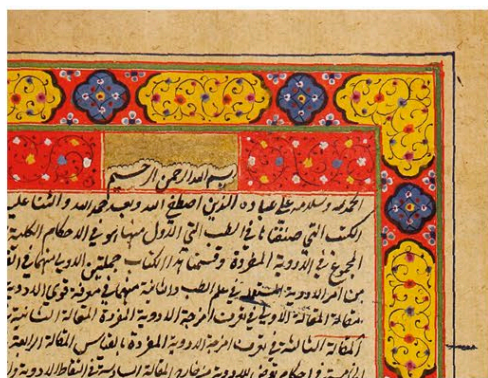 بسم الله الرحمن الرحيم
الحمد لله وسلامه على عباده الذين اصطفى اما وبعد حمد الله والثنا عليه
الكتب التي صنفناها في الطب التي الاول منها هو في الاحكام الكلية
المجموع في الادوية المفردة وقسمنا هذا الكتاب جملتين الاولى منهما في
من امر الادوية في علم الطب والثانية منهما في معرفة قوى الادوية
المقالة الاولى في تعرف امزجة الادوية المفردة المقالة الثانية
المقالة الثالثة في تعرف امزجة الادوية المفردة بالقياس المقالة الرابعة
في احكام تعرض للادوية من خارج المقالة السادسة في التقاط الادوية